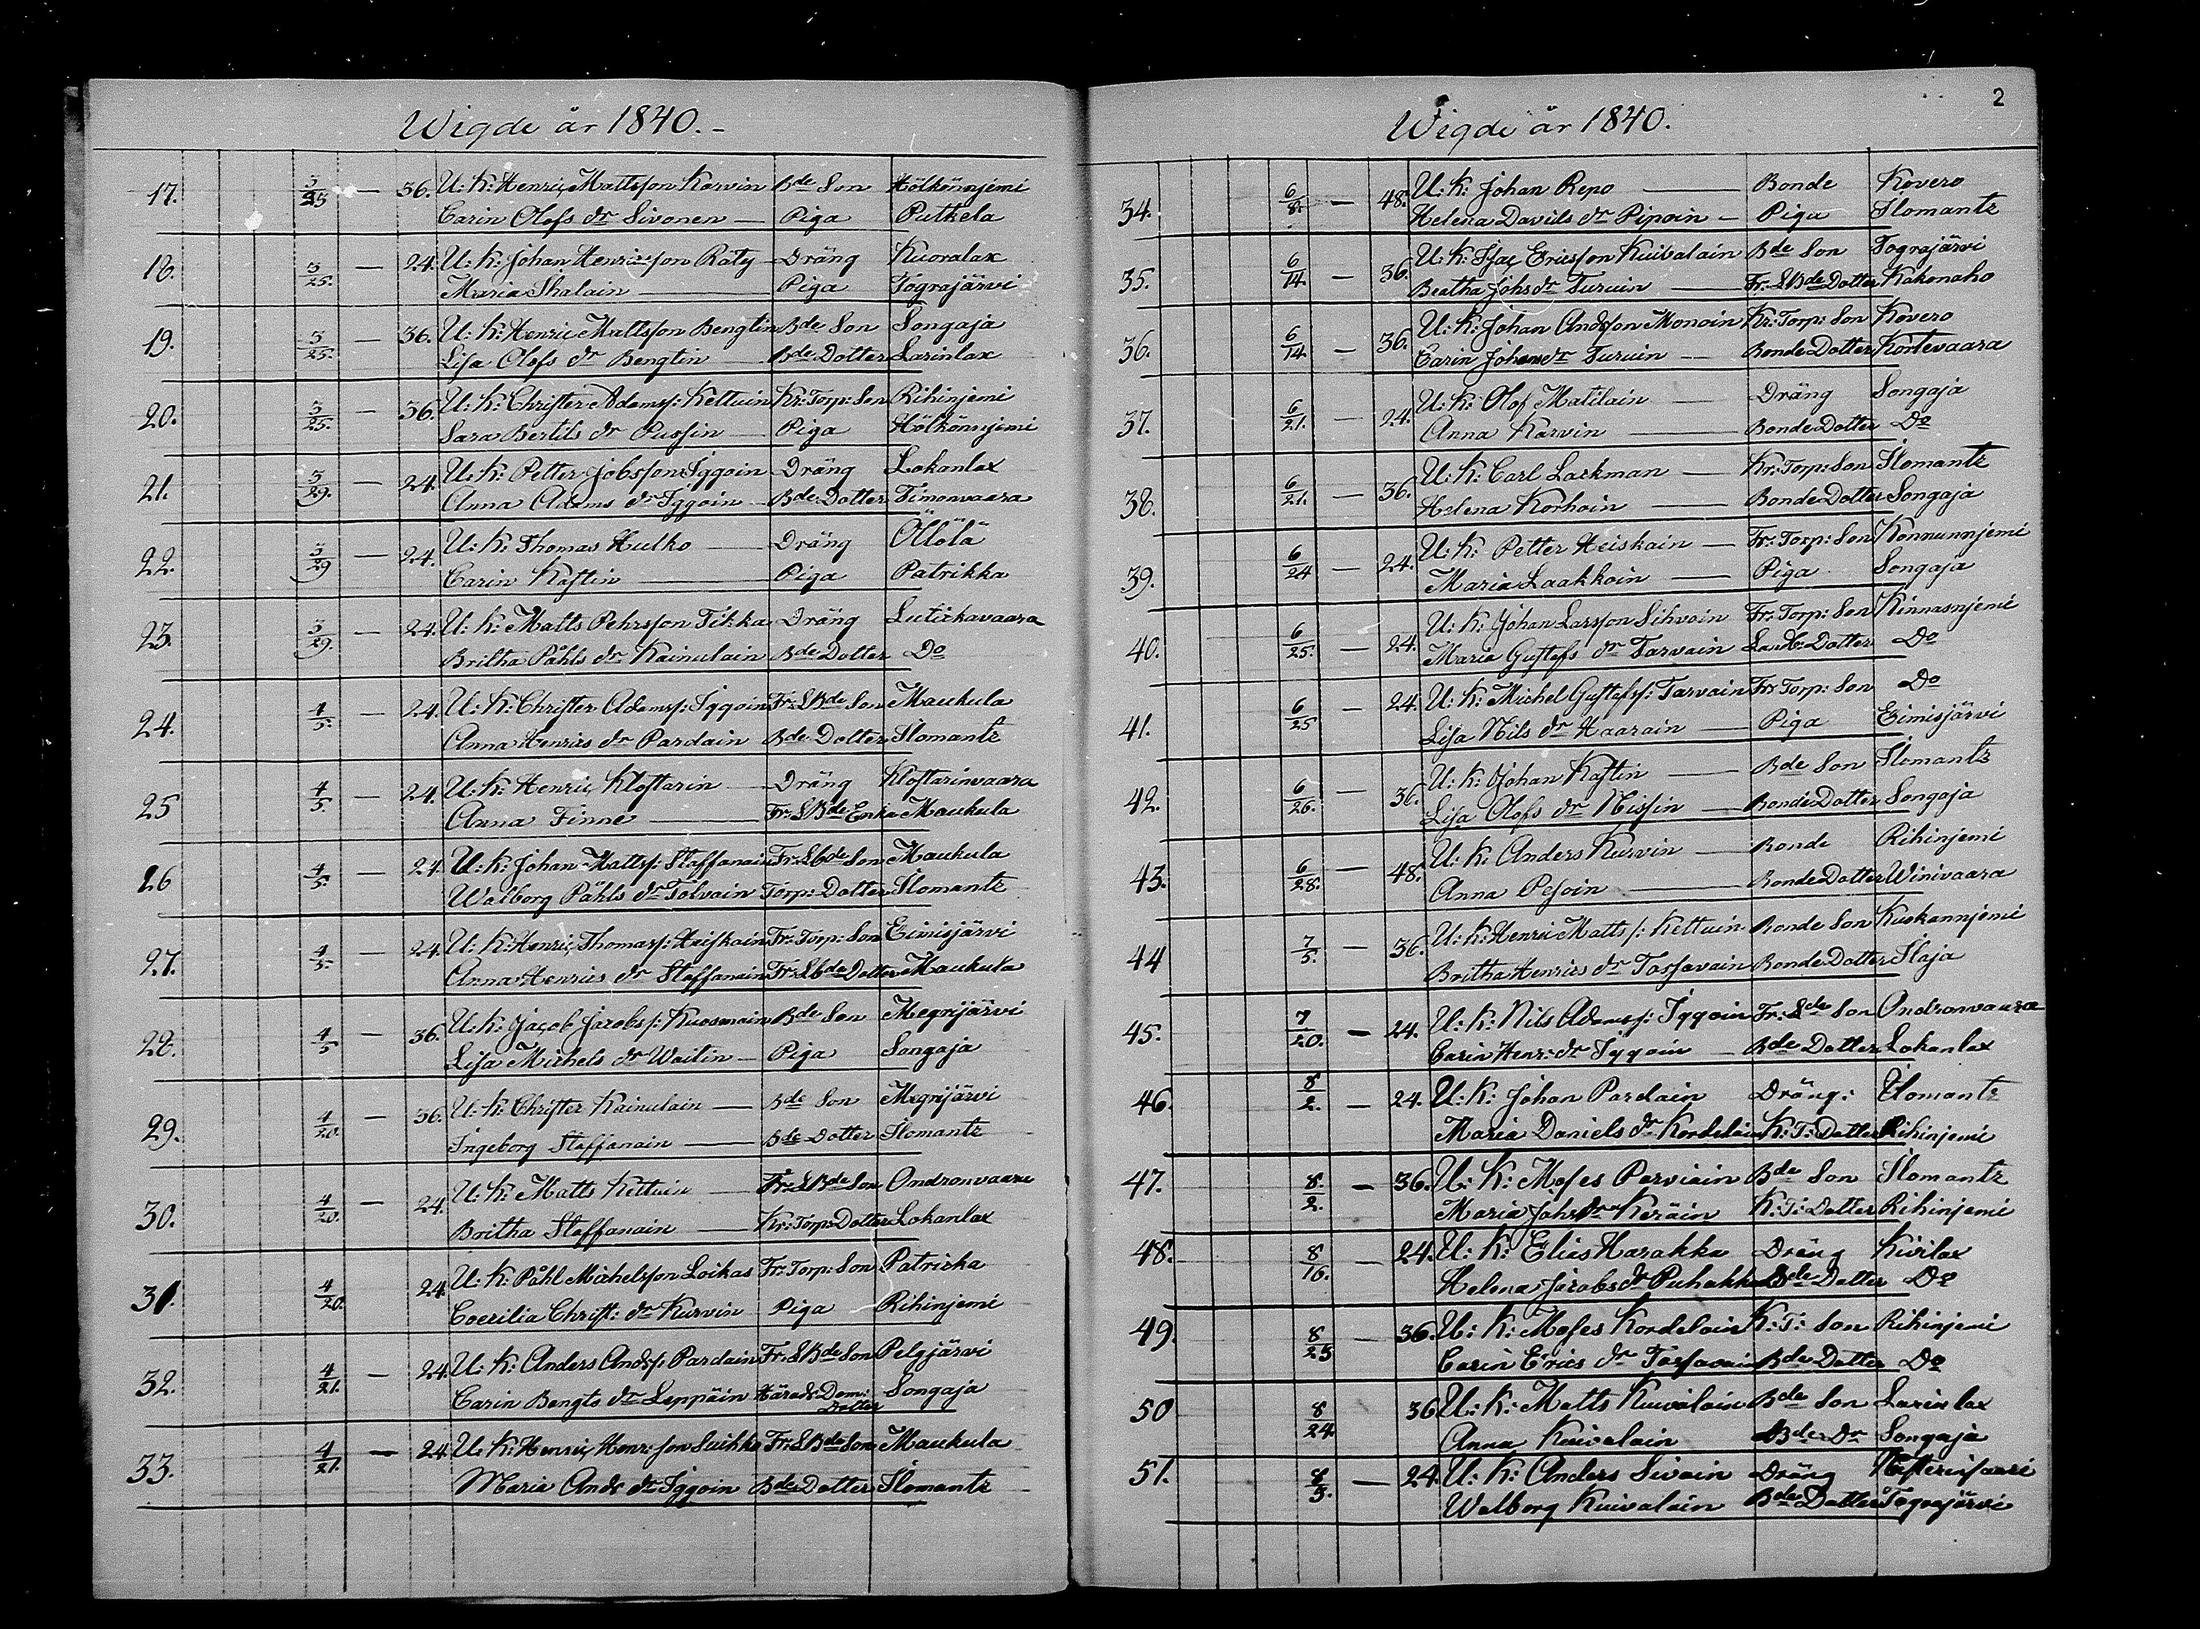 Wigde år 1840.-
17. 3/25 — 36. U: K: Henric Mattsson Karvin Bde Son Hölkönnjemi
Carin Olofs dr Sivonen — Piga Putkela
18. 3/25. — 24. U: K: Johan Henricsson Räty — Dräng Kuoralax
Maria Ihalain — Piga Tograjärvi
19. 3/25. — 36. U: K: Henric Mattsson Bengtin Bde Son Songaja
Lisa Olofs dr Bengtin — Bde Dotter Larinlax
20. 3/25. — 36. U: K: Christer Adamss: Kettuin Kr: Torp: Son Rihinjemi
Sara Bertils dr Pussin — Piga Hölkönnjemi
21. 3/29. — 24. U: K: Petter Jobsson Iggoin Dräng Lokanlax
Anna Adams dr Iggoin — Bde Dotter Timonvaara
22. 3/29 — 24. U: K: Thomas Hulko — Dräng Öllölä
Carin Kaftin — Piga Patrikka
23. 3/29. — 24. U: K: Matts Pehrsson Tikka Dräng Lutickavaara
Britha Påhls dr Kainulain Bde Dotter Do
24. 4/5. — 24. U: K: Christer Adamss: Iggoin Fr: S Bde Son Maukula
Anna Henrics dr Pardain Bde Dotter Ilomantz
25 4/5. — 24. U: K: Henric Kloftarin — Dräng Kloftarinvaara
Anna Finne — Fr: S Bde Enka Maukula
26 4/5. — 24. U: K: Johan Mattss: Staffanain Fr: S bde Son Maukula
Walborg Påhls dr Tolvain Torp: Dotter Ilomantz
27. 4/5. — 24. U: K: Henric Thomass: Heiskain Fr: Torp: Son Eimisjärvi
Anna Henrics dr Staffanain Fr: S bde Dotter Maukula
28. 4/5 — 36. U: K: Jacob Jacobss: Kuosmain Bde Son Megrijärvi
Lisa Michels dr Waitin — Piga Songaja
29. 4/20. — 36. U: K: Christer Kainulain — Bde Son Megrijärvi
Ingeborg Staffanain — Bde Dotter Ilomantz
30. 4/20. — 24. U: K: Matts Kettuin — Fr: S Bde Son Ondronvaara
Britha Staffanain — Kr: Torp: Dotter Lokanlax
31. 4/20. 24. U: K: Påhl Michelsson Loikas Fr: Torp: Son Patricka
Coecilia Christ: dr Kurvin — Piga Rihinjemi
32. 4/21. — 24. U: K: Anders Andss: Pardain Fr: S Bde Son Pelgjärvi
Carin Bengts dr Leppäin Härads Dom: Dotter Songaja
33. 4/21. — 24. U: K: Henric Henr: son Suikka Fr: S Bde Son Maukula
Maria Ands dr Iggoin Bde Dotter Ilomantz
2
Wigde år 1840.
34. 6/8. — 48. U: K: Johan Repo — Bonde Kovero
Helena Davids dr Pipoin — Piga Ilomantz
35. 6/14. — 36. U: K: Isac Ericsson Kuivalain Bde Son Tograjärvi
Beatha Johs dr Turuin — Fr: S Bde Dotter Kakonaho
36. 6/14. — 36. U: K: Johan Andsson Monoin Kr: Torp: Son Kovero
Carin Johans dr Turuin — Bonde Dotter Kortevaara
37. 6/21. — 24. U: K: Olof Matilain — Dräng Songaja
Anna Karvin — Bonde Dotter Do
38. 6/21. — 36. U: K: Carl Lackman — Kr: Torp: Son Ilomantz
Helena Korhoin — Bonde Dotter Songaja
39. 6/24 — 24. U: K: Petter Heiskain — Fr: Torp: Son Konnunnjemi
Maria Laakkoin — Piga Songaja
40. 6/25. — 24. U: K: Johan Larsson Sihvoin Fr: Torp: Son Kinnasnjemi
Maria Gustafs dr Tarvain Dotter Do
41. 6/25 — 24. U: K: Michel Gustafss: Tarvain Fr: Torp: Son Do
Lisa Nils dr Haarain — Piga Eimisjärvi
42. 6/26. — 36. U: K: Johan Kaftin — Bde Son Ilomantz
Lisa Olofs dr Nissin — Bonde Dotter Songaja
43. 6/28. — 48. U: K: Anders Kurvin — Bonde Rihinjemi
Anna Pesoin — Bonde Dotter Winivaara
44 7/5. — 36. U: K: Henric Matts s: Kettuin Bonde Son Kuokannjemi
Britha Henrics dr Tossavain Bonde Dotter Ilaja
45. 7/20. — 24. U: K: Nils Adamss: Iggoin Fr: S de Son Ondronvaara
Carin Henr: dr Iggoin — Bde Dotter Lokanlax
46. 8/2. — 24. U: K: Johan Pardain Dräng: Ilomantz
Maria Daniels dr Kordelain K: T: Dotter Rihinjemi
47. 8/2. — 36. U: K: Moses Parviain Bde Son Ilomantz
Maria Johs dr Keräin K: T: Dotter Rihinjemi
48. 8/16. — 24. U: K: Elias Harakka Dräng Kivilax
Helena Jacobs dr Puhakka Bde Dotter Do
49. 8/23 — 36. U: K: Moses Kordelain K: T: Son Rihinjemi
Carin Erics dr Tossavain Bde Dotter Do
50 8/24. 36 U: K: Matts Kuivalain Bde Son Larinlax
Anna Kuivalain Bde Dr Songaja
51. 8/3. — 24. U: K: Anders Sivoin Dräng
Walborg Kuivalain Bde Dotter Tograjärvi